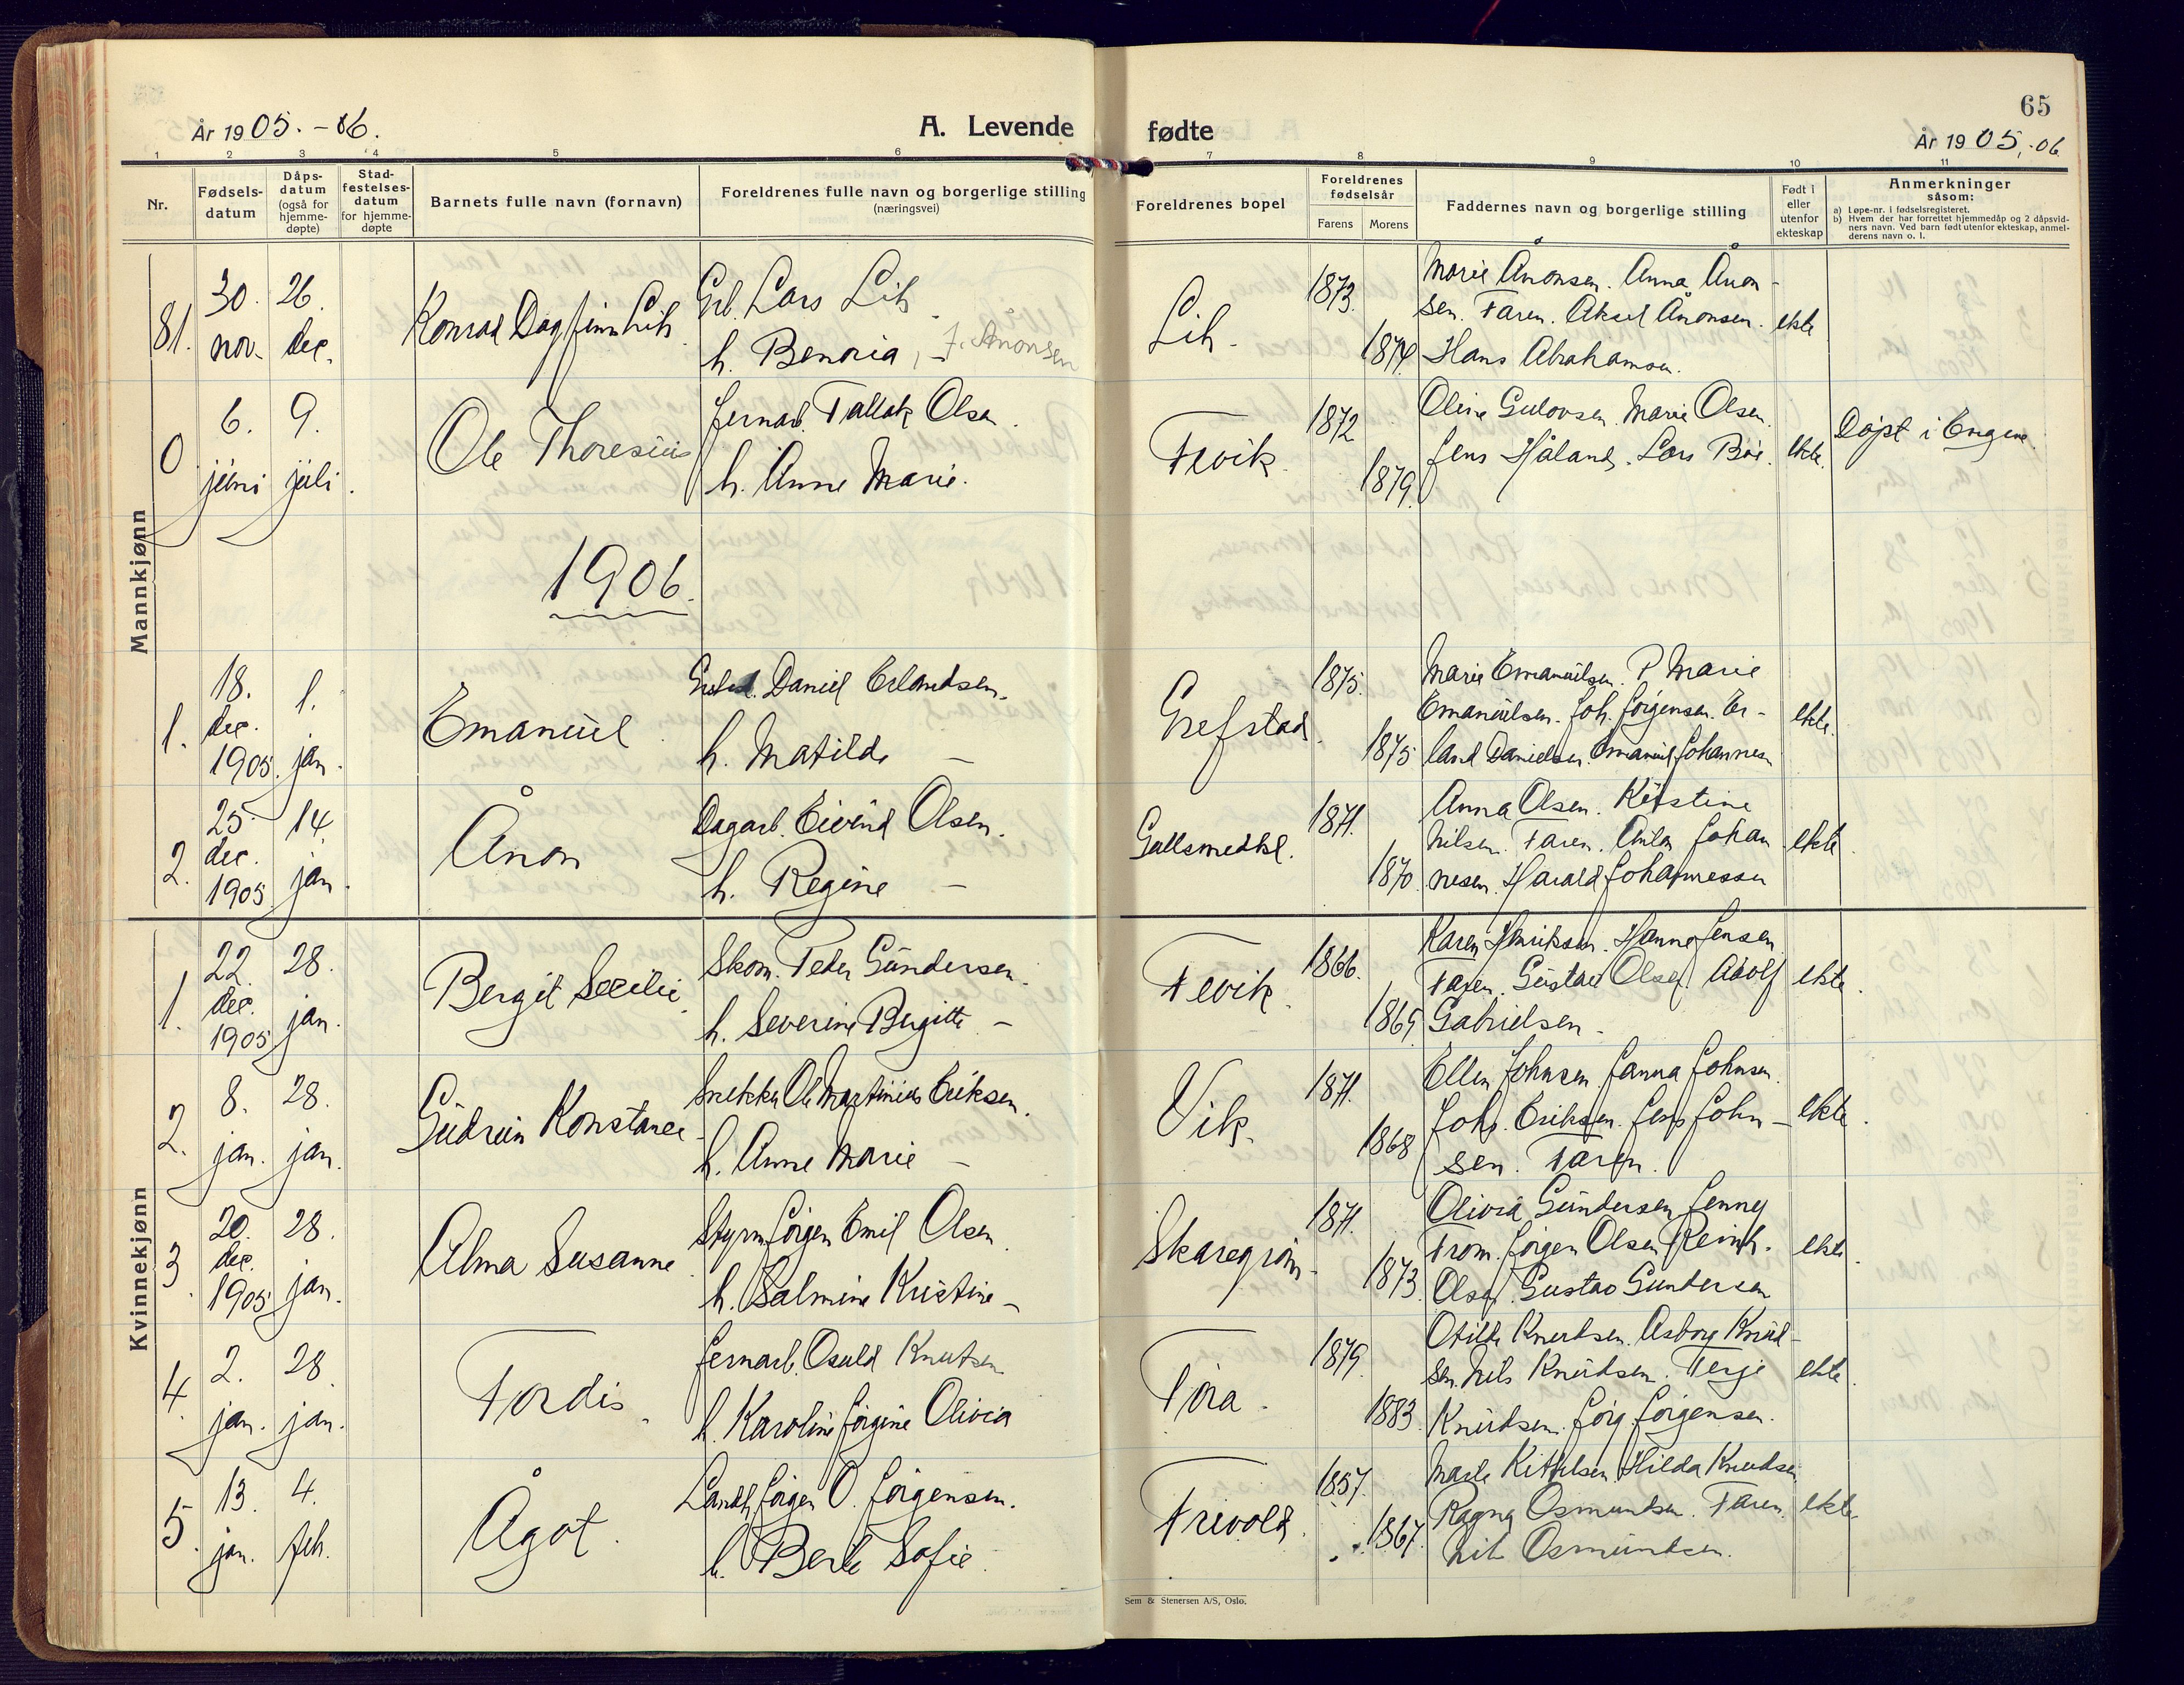 65
År 1905. - 06.
A. Levende
fødte
År 1905.-06
1 2 3 4 5 6 7 8 9 10 11
Nr.
Fødsels-
datum
Dåps-
datum
(også for
hjemme-
døpte)
Stad-
festelses-
datum
for hjemme-
døpte
Barnets fulle navn (fornavn)
Foreldrenes fulle navn og borgerlige stilling
(næringsvei)
Foreldrenes bopel
Foreldrenes
fødselsår
Farens Morens
Faddernes navn og borgerlige stilling
Født i
eller
utenfor
ekteskap
Anmerkninger
såsom:
a) Løpe-nr. i fødselsregisteret.
b) Hvem der har forrettet hjemmedåp og 2 dåpsvid-
ners navn. Ved barn født utenfor ekteskap, anmel-
derens navn o. l.
Mannkjønn
81.
30.
nov.
26.
dec.
Konrad Dagfinn Lih
Grb. Lars Lih
h. Benoria, - f. Ånonsen
Lih.
1873.
1874.
Marie Ånonsen. Anna Ånon-
sen. Faren. Aksel Ånonsen.
Hans Abrahamsen.
ekte
0
6.
juni
9.
juli.
Ole Thoresius
Jernarb. Tallak Olsen.
h. Anne Marie.
Fevik.
1872
1879.
Oline Gulovsen. Marie Olsen.
Jens Håland. Lars Böe.
ekte.
Döpt i Engene
1906.
1.
18.
dec.
1905.
1.
jan.
Emanuel
Daniel Erlandsen.
h. Matilde -
Grefstad.
1875.
1875
Marie Emanuelsen. P. Marie
Emanuelsen. Joh. Jörgensen. Er-
land Danielsen. Emanuel Johannesen
ekte.
2.
25.
dec.
1905.
14
jan.
Ånon
Dagarb. Eivind Olsen.
h. Regine -
Gullsmedkl.
1871.
1870.
Anna Olsen. Kirstine
Nilsen. Faren. Johan
nesen. Harald Johannessen
ekte.
Kvinnekjønn
1.
22.
dec.
1905
28.
jan.
Bergit Secilie.
Skom. Peder Gundersen.
h. Severine Birgitte -
Fevik.
1866.
1865
Karen Henriksen. Hanne Jensen.
Faren. Gustav Olsen. Adolf
Gabrielsen.
ekte.
2.
8.
jan.
28.
jan.
Gudrun Konstance
Snekker Ole Martinius Eriksen.
h. Anne Marie -
Vik.
1871.
1868
Ellen Johnsen. Janna Johnsen.
Johs. Eriksen. Jens John-
sen. Faren.
ekte.
3.
20.
dec.
1905
28.
jan.
Alma Susanne.
Styrm. Jörgen Emil Olsen.
h. Salmine Kristine -
Skaregröm.
1871.
1873.
Olivia Gundersen. Jenny
From. Jörgen Olsen. Reinh.
Olsen. Gustav Gundersen
ekte.
4.
2.
jan.
28.
jan.
Tordis.
Jernarb. Osuld Knutsen
h. Karoline Jörgine Olivia
Töra.
1879.
1883.
Otilde Knudsen. Asborg Knud-
sen. Nils Knudsen. Terje
Knudsen. Jörg. Jörgensen.
ekte.
5.
13.
jan.
4.
feb.
Ågot.
Landh. Jörgen O. Jörgensen.
h. Berte Sofie.
Frivold.
1857.
1867.
Kittelsen. Hilda Knudsen.
Ragna Osmundsen. Faren.
Nils Osmundsen.
ekte.
Sem & Stenersen A/S, Oslo.